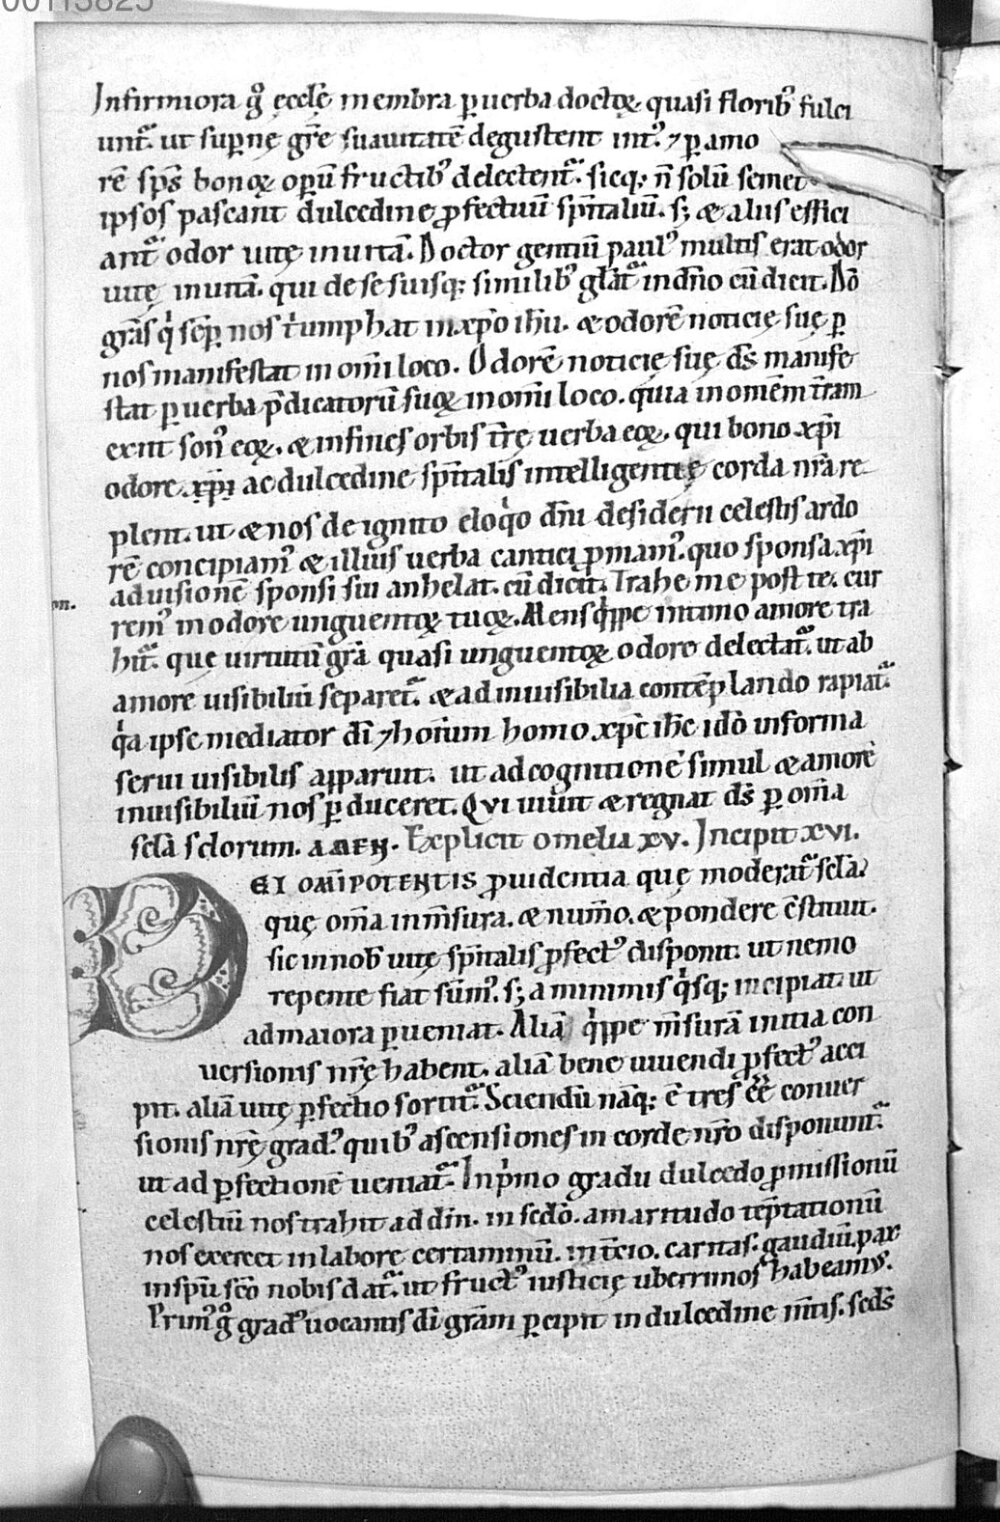 00113825
Infirmiora gͦ ęcclę̄ membra ꝑ uerba doctoꝝ quasi floribꝰ fulci
unt᷑ ut supnę gr̄e suauitatē degustent int᷑ ⁊ ꝑ amo
rē sp̄s bonoꝝ operū fructibꝰ delectent᷑. sicq; n̄ solū semet
ipsos pascant dulcedine ꝓfectuū sp̄italiū. s; & aliis effici
ant᷑ odor uitę in uitā. Doctor gentiū paulꝰ multis erat odor
uitę in uitā. qui de se suisq; similibꝰ gl̄at᷑ in dn̄o cū dicit. Dō
grās qͥ sēꝑ nos tͥumphat in xp̄o ih̄u. & odorē noticię suę ꝑ
nos manifestat in om̄i loco. Odorē noticię suę d̄s manife
stat ꝑ uerba p̄dicatorū suoꝝ in om̄i loco. quia in omēm t̄ram
exiit sonꝰ eoꝝ. & in fines orbis t̄rę uerba eoꝝ. qui bono xp̄i
odore xp̄i ac dulcedine sp̄italis intelligentię corda nr̄a re
plent. ut & nos de ignito eloqͥo dn̄i desiderii celestis ardo
rē concipiamꝰ & illius uerba cantici ꝓmamꝰ. quo sponsa xp̄i
ad uisionē sponsi sui anhelat. cū dicit. Trahe me post te. cur
on.
remꝰ in odore unguentoꝝ tuoꝝ. Mens qͥppe intimo amore tra
hit᷑. quę uirtutū grā quasi unguentoꝝ odore delectat᷑. ut ab
amore uisibiliū separet᷑. & ad inuisibilia contēplando rapiat᷑.
qͥa ipse mediator dī ⁊ hoīum homo xp̄c ih̄c idō in forma
serui uisibilis apparuit. ut ad cognitionē simul & amorē
inuisibiliū nos ꝑduceret. Qui uiuit & regnat d̄s ꝑ om̄a
scl̄a sclorum. AMEN. Explicit omelia xv. Incipit xvi.
DEI OMĪPOTENTIS ꝓuidentia quę moderat᷑ scl̄a.
quę om̄a in m̄sura. & num̄o. & pondere c̄stituit.
sic in nob̄ uitę sp̄italis ꝓfectꝰ disponit. ut nemo
repente fiat sūmꝰ. s; a minimis qͥsq; incipiat. ut
ad maiora ꝑueniat. Aliā qͥppe m̄surā initia con
uersionis nr̄ę habent. aliā bene uiuendi ꝓfectꝰ acci
pit. aliā uitę ꝑfectio sortit᷑. Sciendū nāq; ē tres ēē conuer
sionis nr̄ę gradꝰ. quibꝰ ascensiones in corde nr̄o disponunt᷑.
ut ad ꝑfectionē ueniat᷑. In pͥmo gradu dulcedo ꝓmissionū
celestiū nos trahit ad dm̄. in sc̄do. amaritudo tēptationū
nos exercet in labore certaminū. in t̄cio. caritas. gaudiū. pax
in sp̄u sc̄o nobis dat᷑. ut fructꝰ iusticię uberrimos habeamꝰ.
Primꝰ gͦ gradꝰ uocantis dī grām ꝑcipit in dulcedine m̄tis. scd̄s